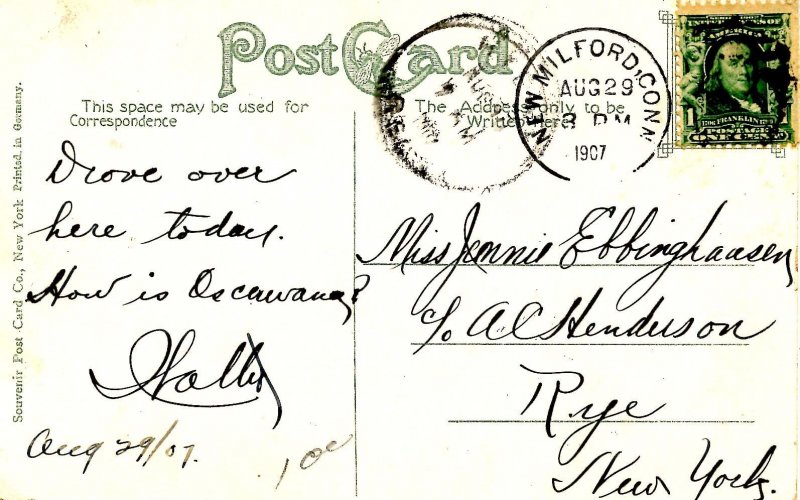 Post Card
This space may be used for
Correspondence
The Address only to be
Written here
NEW MILFORD, CONN.
AUG 29
3 PM
1907
SERIES 1902
UNITED STATES OF
AMERICA
1 FRANKLIN 1
POSTAGE
ONE CENT
Souvenir Post Card Co., New York Printed in Germany.
Drove over
here today.
How is Oscawana?
Aug 29/07.
Miss Jennie Ebbinghausen
c/o A C Henderson
Rye
New York.